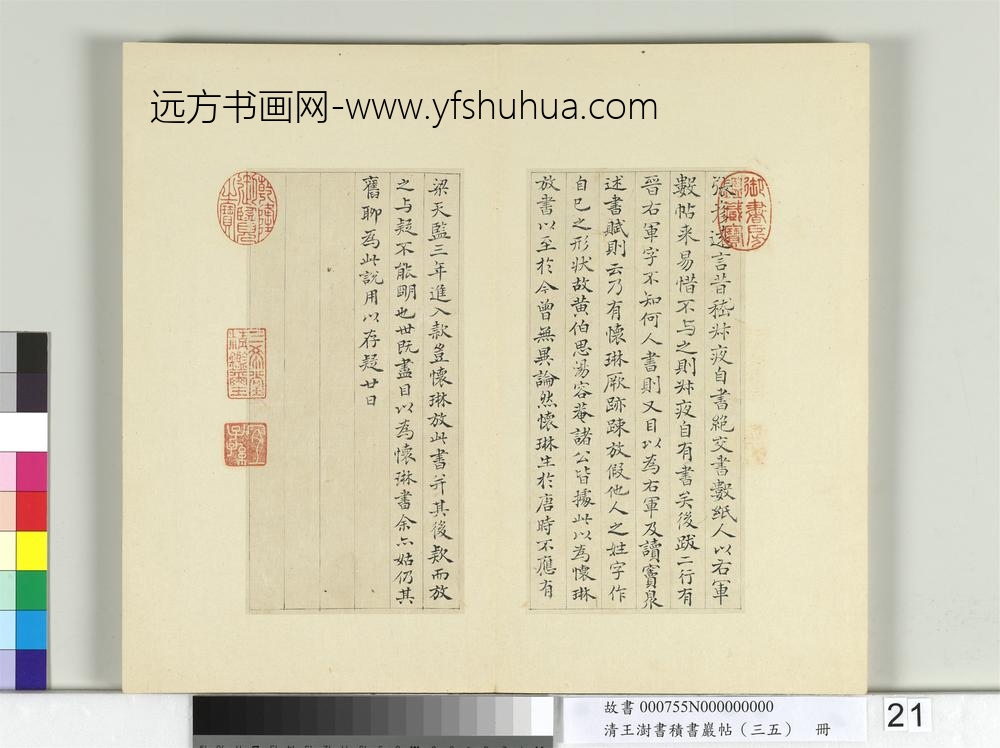 远方书画网-www.yfshuhua.com
張彦遠言昔嵇叔夜自書絶交書數紙人以右軍
數帖来易惜不与之則叔夜自有書矣後跋二行有
晉右軍字不知何人書則又目以為右軍及讀竇臮
述書賦則云乃有懷琳厥跡踈放假他人之姓字作
自己之形状故黄伯思湯容菴諸公皆據此以為懷琳
放書以至於今曾無異論然懷琳生於唐時不應有
梁天監三年進入款豈懷琳放此書并其後款而放
之与疑不能明也世既盡目以為懷琳書余亦姑仍其
舊聊為此說用以存疑廿日
御書房
鑑藏寶
乾隆
御覽
之寶
三希堂
精鑑璽
宜子孫
故書 000755N000000000
清王澍書積書巖帖（三五） 冊
21